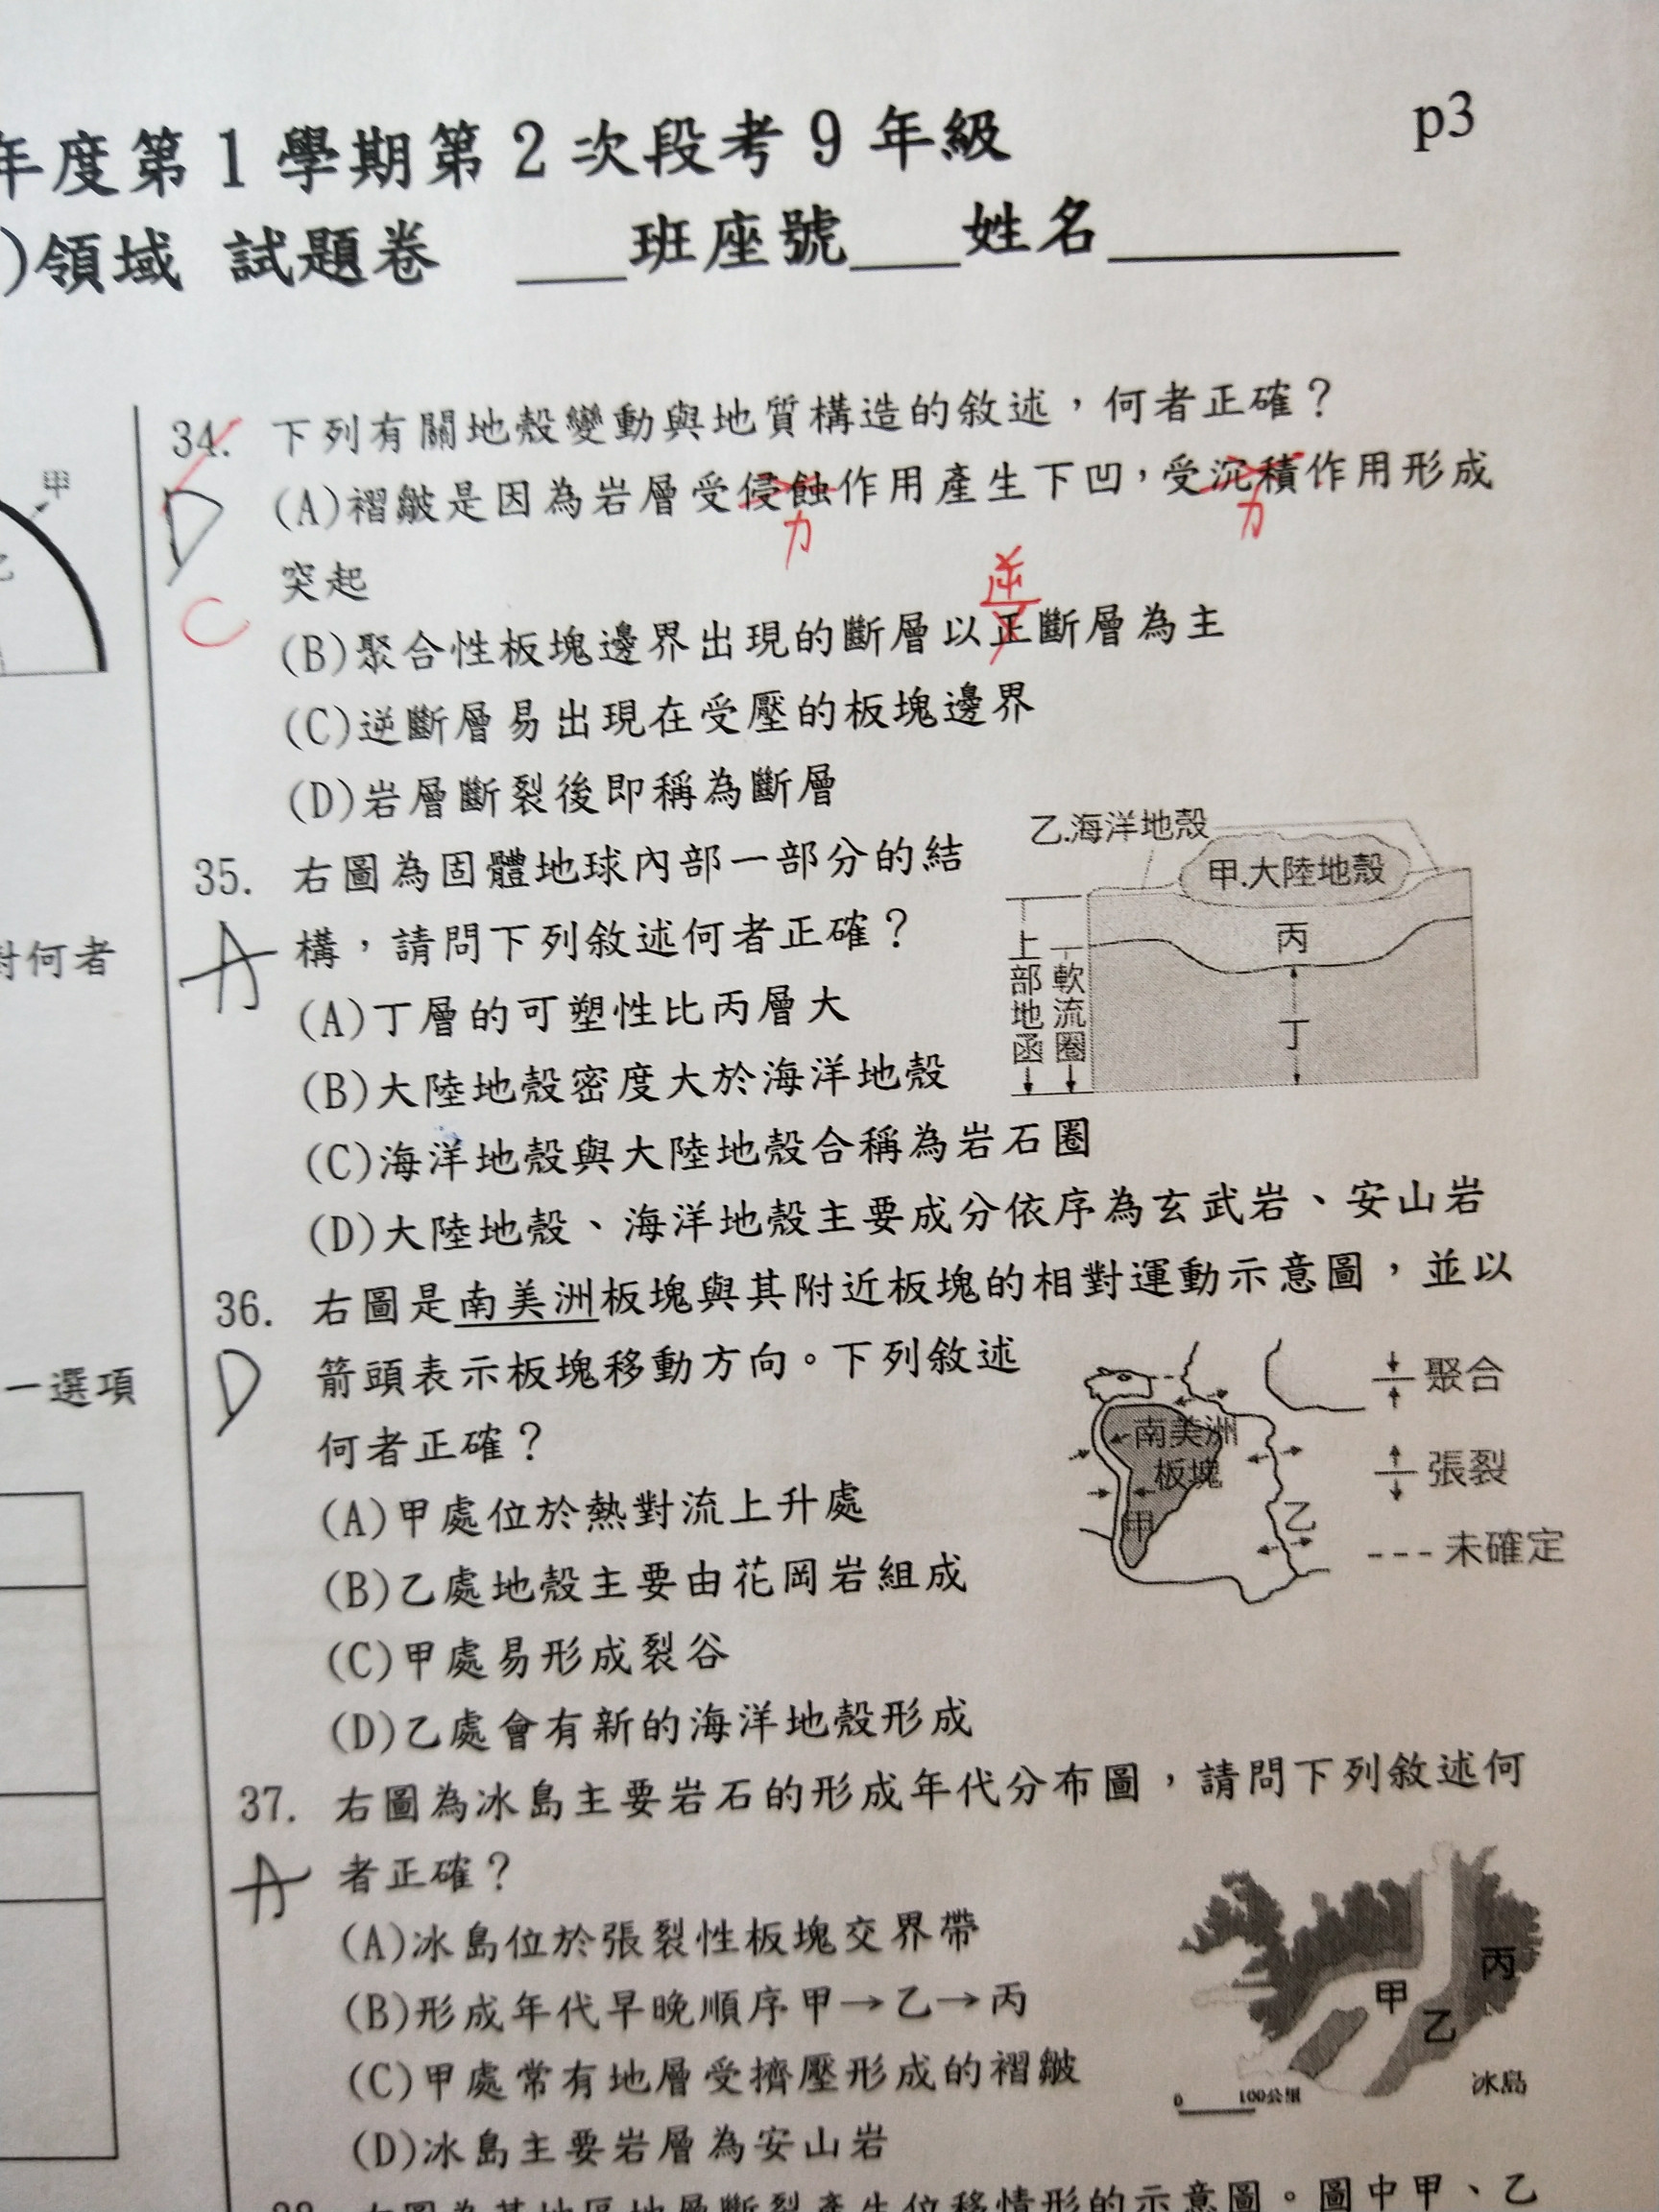 p3
年度第1學期第2次段考9年級
)領域 試題卷 ___班座號___姓名______
甲
對何者
一選項
34. 下列有關地殼變動與地質構造的敘述，何者正確？
D
C
(A)褶皺是因為岩層受侵蝕作用產生下凹，受沉積作用形成
力
力
突起
逆
(B)聚合性板塊邊界出現的斷層以正斷層為主
(C)逆斷層易出現在受壓的板塊邊界
(D)岩層斷裂後即稱為斷層
35. 右圖為固體地球內部一部分的結
A
構，請問下列敘述何者正確？
(A)丁層的可塑性比丙層大
(B)大陸地殼密度大於海洋地殼
(C)海洋地殼與大陸地殼合稱為岩石圈
(D)大陸地殼、海洋地殼主要成分依序為玄武岩、安山岩
乙.海洋地殼
甲.大陸地殼
丙
丁
上部地函
軟流圈
36. 右圖是南美洲板塊與其附近板塊的相對運動示意圖，並以
D
箭頭表示板塊移動方向。下列敘述
何者正確？
(A)甲處位於熱對流上升處
(B)乙處地殼主要由花岡岩組成
(C)甲處易形成裂谷
(D)乙處會有新的海洋地殼形成
南美洲
板塊
甲
乙
聚合
張裂
未確定
37. 右圖為冰島主要岩石的形成年代分布圖，請問下列敘述何
A
者正確？
(A)冰島位於張裂性板塊交界帶
(B)形成年代早晚順序甲→乙→丙
(C)甲處常有地層受擠壓形成的褶皺
(D)冰島主要岩層為安山岩
丙
甲
乙
0 100公里
冰島
38. 右圖為某地區地層斷裂產生位移情形的示意圖。圖中甲、乙